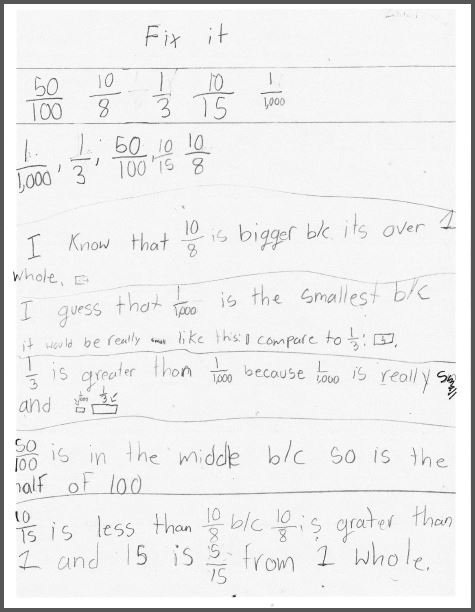 Fix it
50/100 10/8 1/3 10/15 1/1,000
1/1,000, 1/3, 50/100, 10/15 10/8
I Know that 10/8 is bigger b/c its over 1
whole.
I guess that 1/1,000 is the smallest b/c
it would be really small like this: compare to 1/3: .
1/3 is greater than 1/1,000 because 1/1,000 is really
and 1/1,000 1/3
50/100 is in the middle b/c 50 is the
half of 100
10/15 is less than 10/8 b/c 10/8 is grater than
1 and 15 is 5/15 from 1 whole.